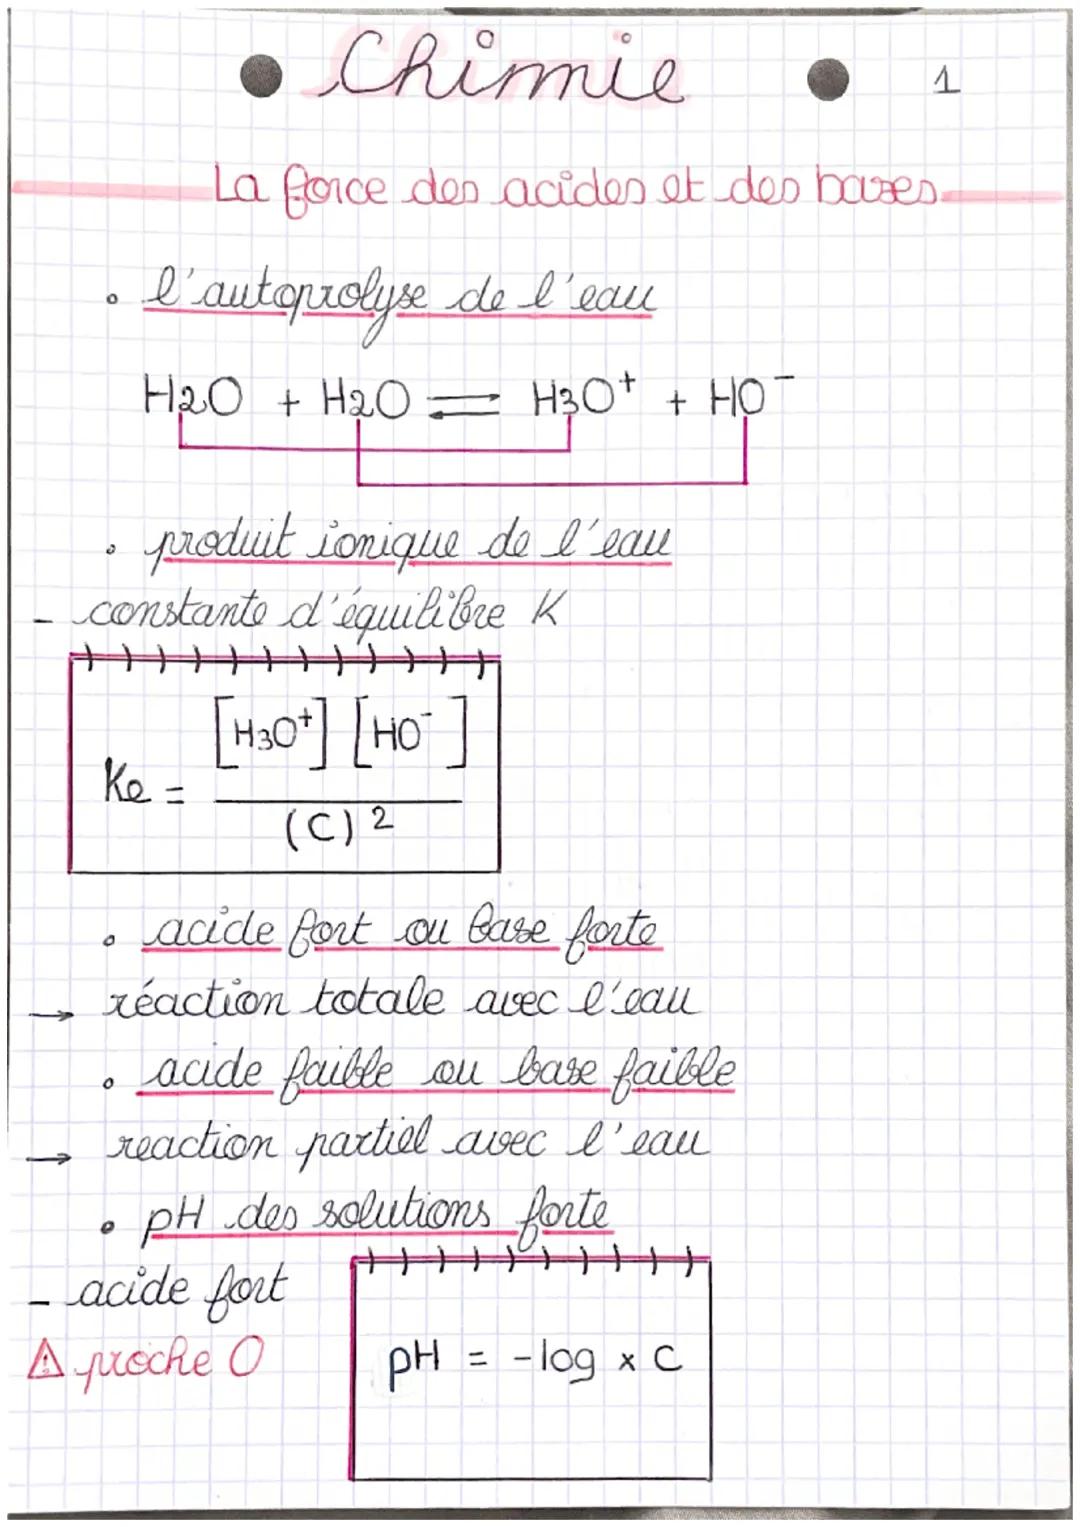 Chimie 1
La force des acides et des bases
• l'autoprolyse de l'eau
H2O + H2O ⇌ H3O⁺ + HO⁻
• produit ionique de l'eau
- constante d'équilibre K
Ke = [H3O⁺] [HO⁻]
(C)²
• acide fort ou base forte
→ réaction totale avec l'eau
• acide faible ou base faible
→ reaction partiel avec l'eau
• pH des solutions forte
- acide fort
⚠ proche 0
pH = -log x C